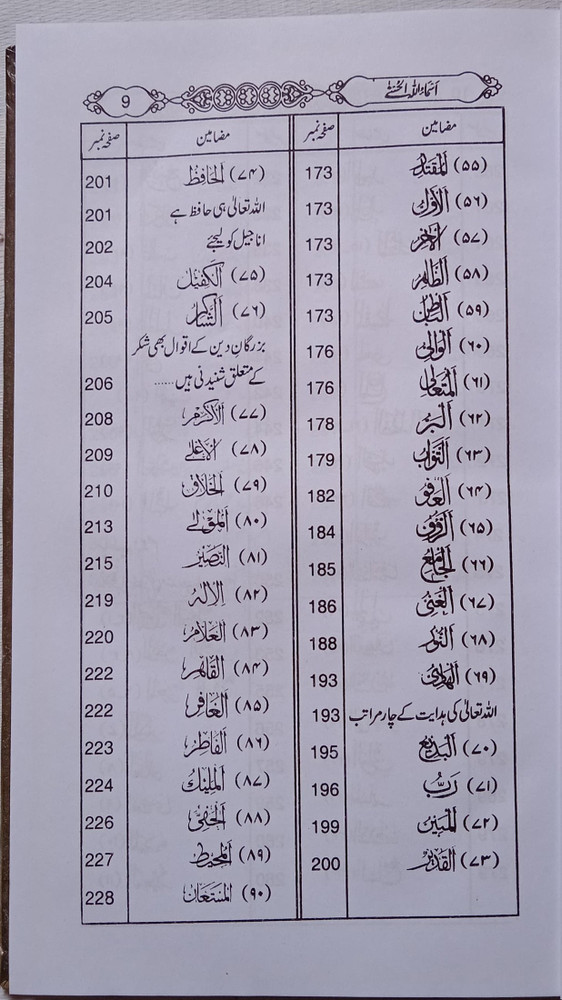 اسماء اللہ الحسنیٰ
9
مضامین صفحہ نمبر
(۵۵) المقتدر 173
(۵۶) الاول 173
(۵۷) الآخر 173
(۵۸) الظاہر 173
(۵۹) الباطن 173
(۶۰) الوالی 176
(۶۱) المتعالی 176
(۶۲) البر 178
(۶۳) التواب 179
(۶۴) العفو 182
(۶۵) الرؤف 184
(۶۶) الجامع 185
(۶۷) الغنی 186
(۶۸) النور 188
(۶۹) الھادی 193
اللہ تعالیٰ کی ہدایت کے چار مراتب 193
(۷۰) البدیع 195
(۷۱) رب 196
(۷۲) المبین 199
(۷۳) القدیر 200
مضامین صفحہ نمبر
(۷۴) الحافظ 201
اللہ تعالیٰ ہی حافظ ہے 201
اناجیل کو لیجئے 202
(۷۵) الکفیل 204
(۷۶) الشاکر 205
بزرگان دین کے اقوال بھی شکر
کے متعلق شنیدنی ہیں...... 206
(۷۷) الاکرم 208
(۷۸) الاعلیٰ 209
(۷۹) الخلاق 210
(۸۰) المولیٰ 213
(۸۱) النصیر 215
(۸۲) الالٰہ 219
(۸۳) العلام 220
(۸۴) القاہر 222
(۸۵) الغافر 222
(۸۶) الفاطر 223
(۸۷) الملیک 224
(۸۸) الحفی 226
(۸۹) المحیط 227
(۹۰) المستعان 228